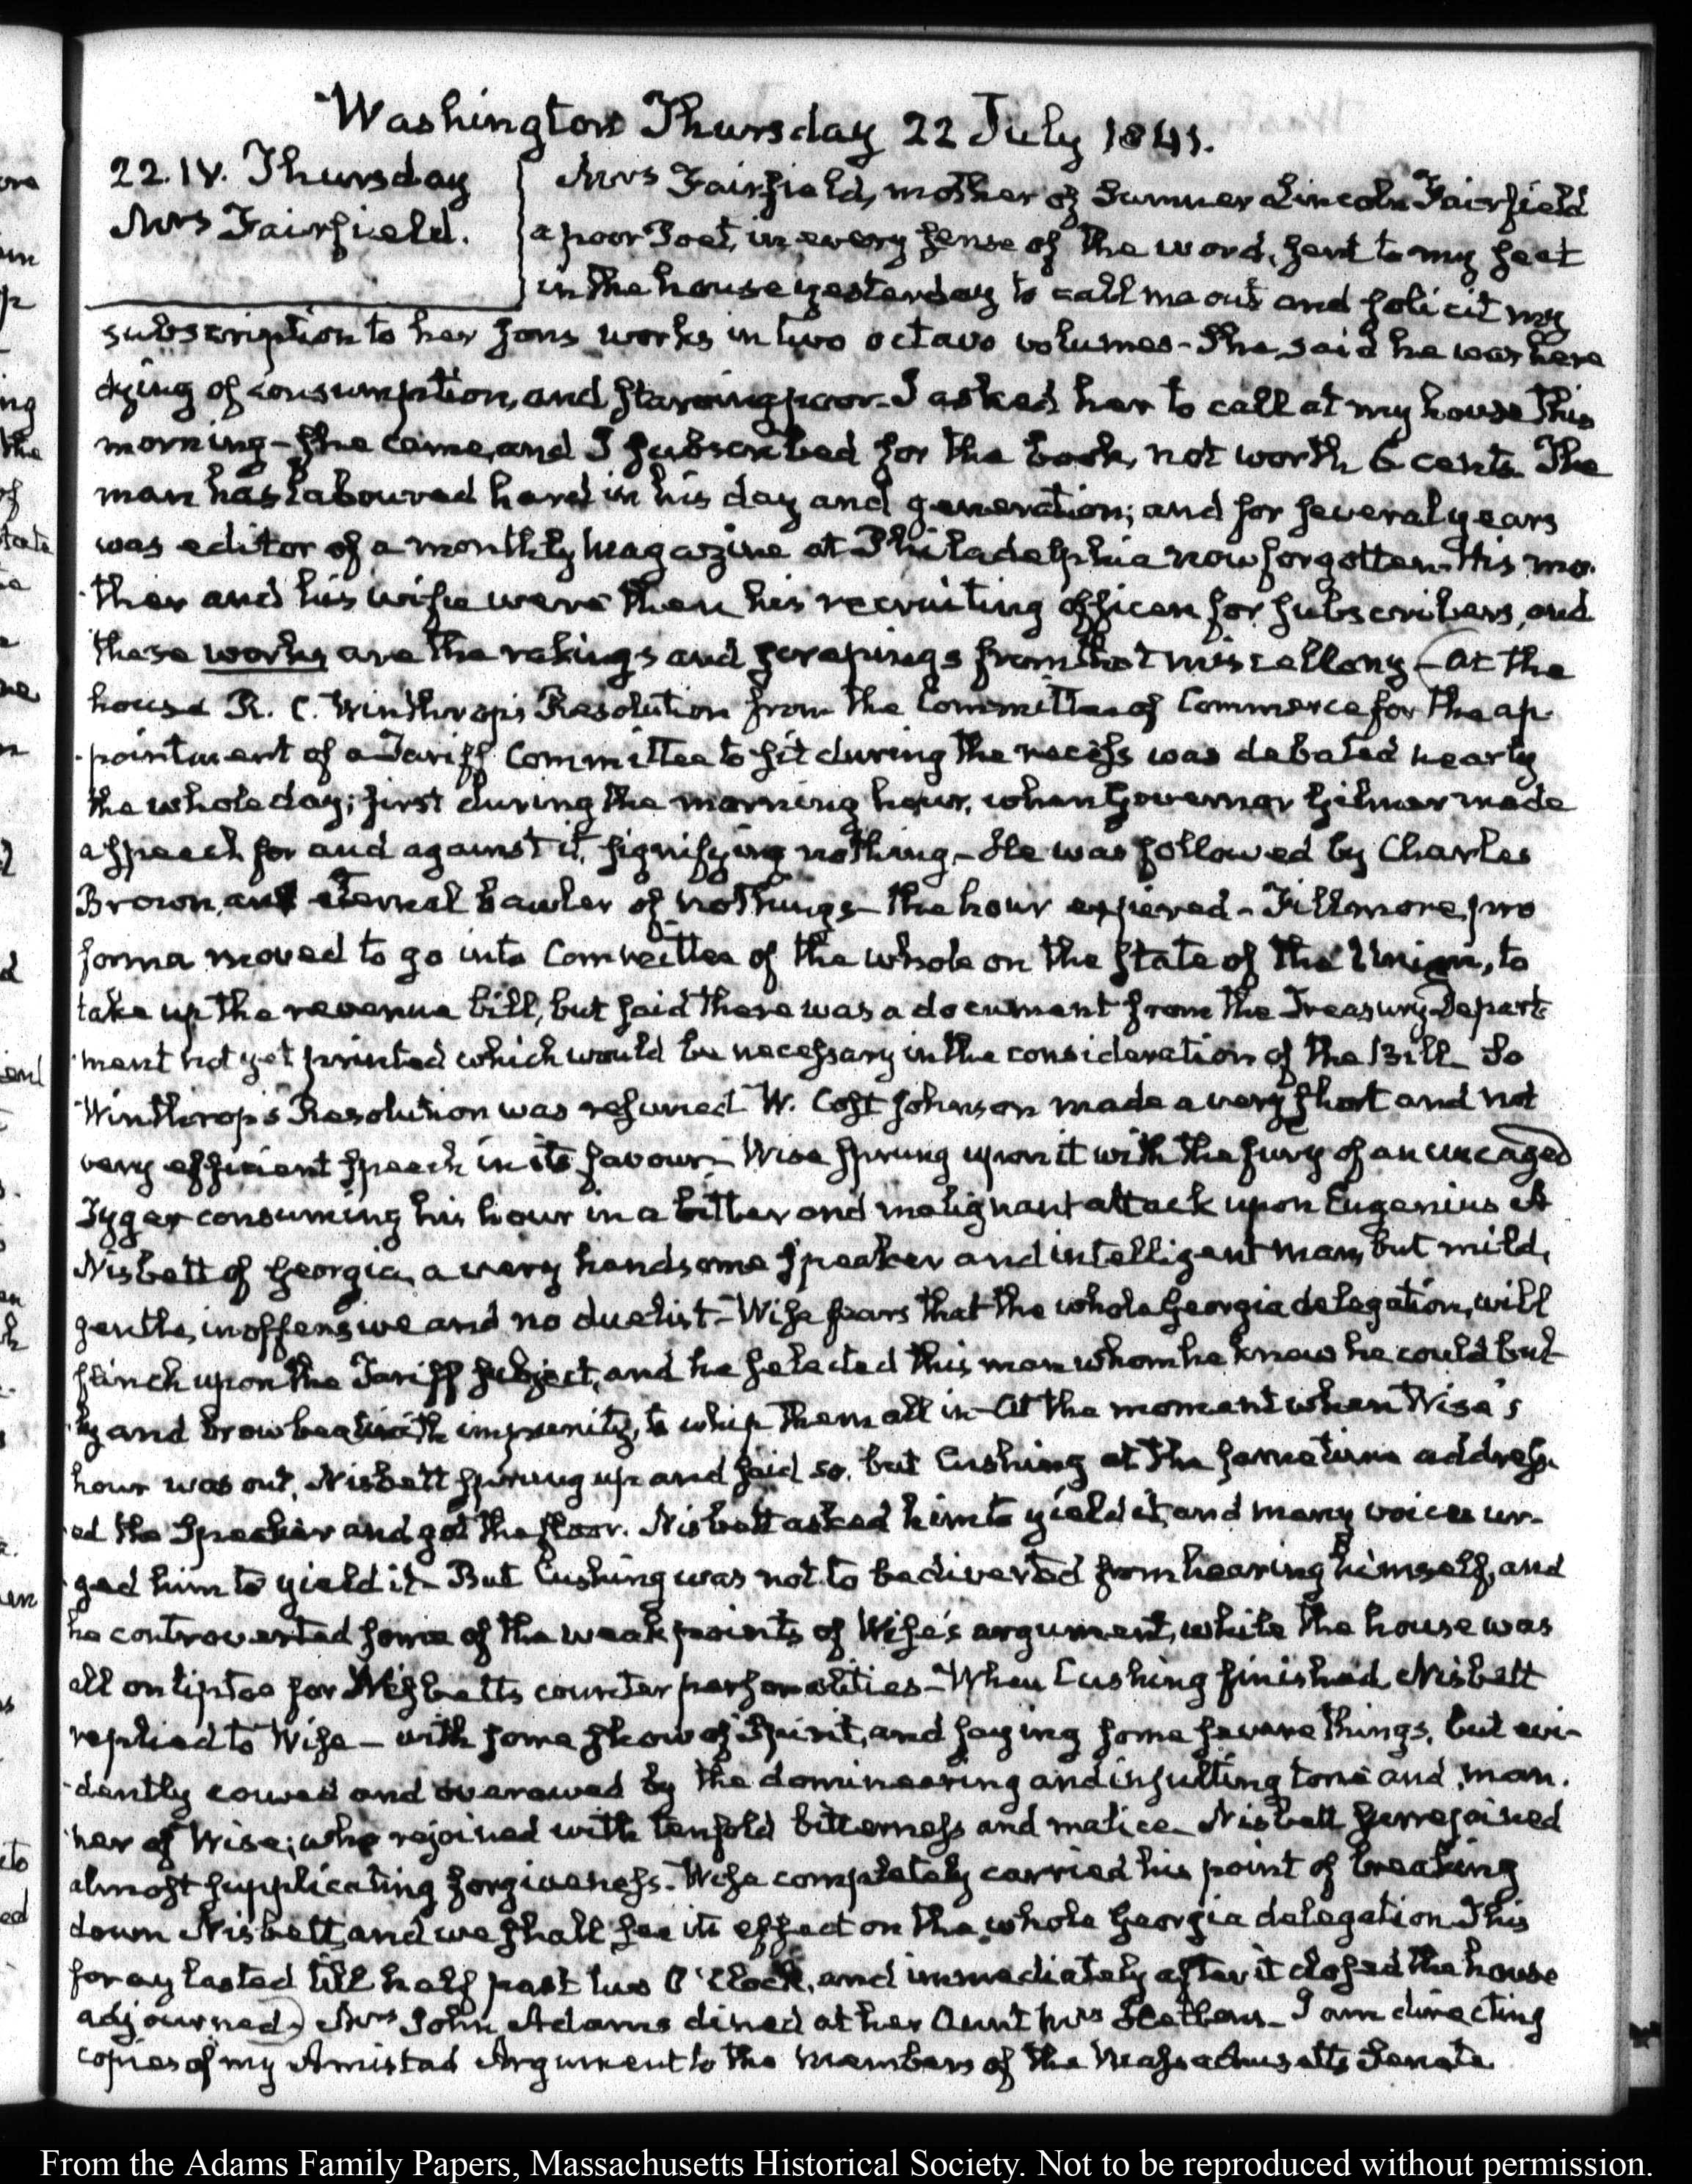 Washington Thursday 22 July 1841.
22. IV. Thursday
Mrs Fairfield.
Mrs Fairfield, mother of Sumner Lincoln Fairfield
a poor Poet, in every sense of the word, sent to my seat
in the house yesterday to call me out and solicit my
subscription to her sons works in two octavo volumes - She said he was here
dying of consumption, and starving poor - I asked her to call at my house this
morning - she came, and I subscribed for the book, not worth 6 cents. The
man has laboured hard in his day and generation; and for several years
was editor of a monthly Magazine at Philadelphia now forgotten. His mo-
ther and his wife were then his recruiting officers for subscribers, and
these works are the rakings and scrapings from that miscellany - (At the
house R. C. Winthrop's Resolution from the Committee of Commerce for the ap-
pointment of a Tariff Committee to sit during the recess was debated nearly
the whole day; first during the morning hour, when Governor Gilmer made
a speech for and against it, signifying nothing - He was followed by Charles
Brown, an eternal bawler of nothings - the hour expired - Fillmore, pro
forma moved to go into Committee of the whole on the State of the Union, to
take up the revenue bill, but said there was a document from the Treasury Depart-
ment not yet printed which would be necessary in the consideration of the Bill - So
Winthrop's Resolution was resumed W. Cost Johnson made a very short and not
very efficient speech in its favour - Wise sprung upon it with the fury of an uncaged
Tyger consuming his hour in a bitter and malignant attack upon Eugenius A
Nisbett of Georgia, a very handsome Speaker and intelligent man, but mild,
gentle, inoffensive and no duelist - Wise fears that the whole Georgia delegation, will
flinch upon the Tariff subject, and he selected this man whom he knew he could bul-
ly and brow beat with impunity, to whip them all in - At the moment when Wise's
hour was out, Nisbett sprung up and said so, but Cushing at the same time address-
ed the Speaker and got the floor. Nisbett asked him to yield it, and many voices ur-
ged him to yield it - But Cushing was not to be diverted from hearing himself, and
he controverted some of the weak points of Wise's argument, while the house was
all on tiptoe for Nisbetts counter personalities - When Cushing finished Nisbett
replied to Wise - with some show of Spirit, and saying some severe things, but evi-
dently cowed and overawed by the domineering and insulting tone and man-
ner of Wise; who rejoined with tenfold bitterness and malice - Nisbett surrejoined
almost supplicating forgiveness - Wise completely carried his point of breaking
down Nisbett, and we shall see its effect on the whole Georgia delegation This
foray lasted till half past two O'Clock, and immediately after it closed the house
adjourned) Mrs John Adams dined at her Aunt Mrs - I am directing
copies of my Amistad Argument to the Members of the Massachusetts Senate
From the Adams Family Papers, Massachusetts Historical Society. Not to be reproduced without permission.